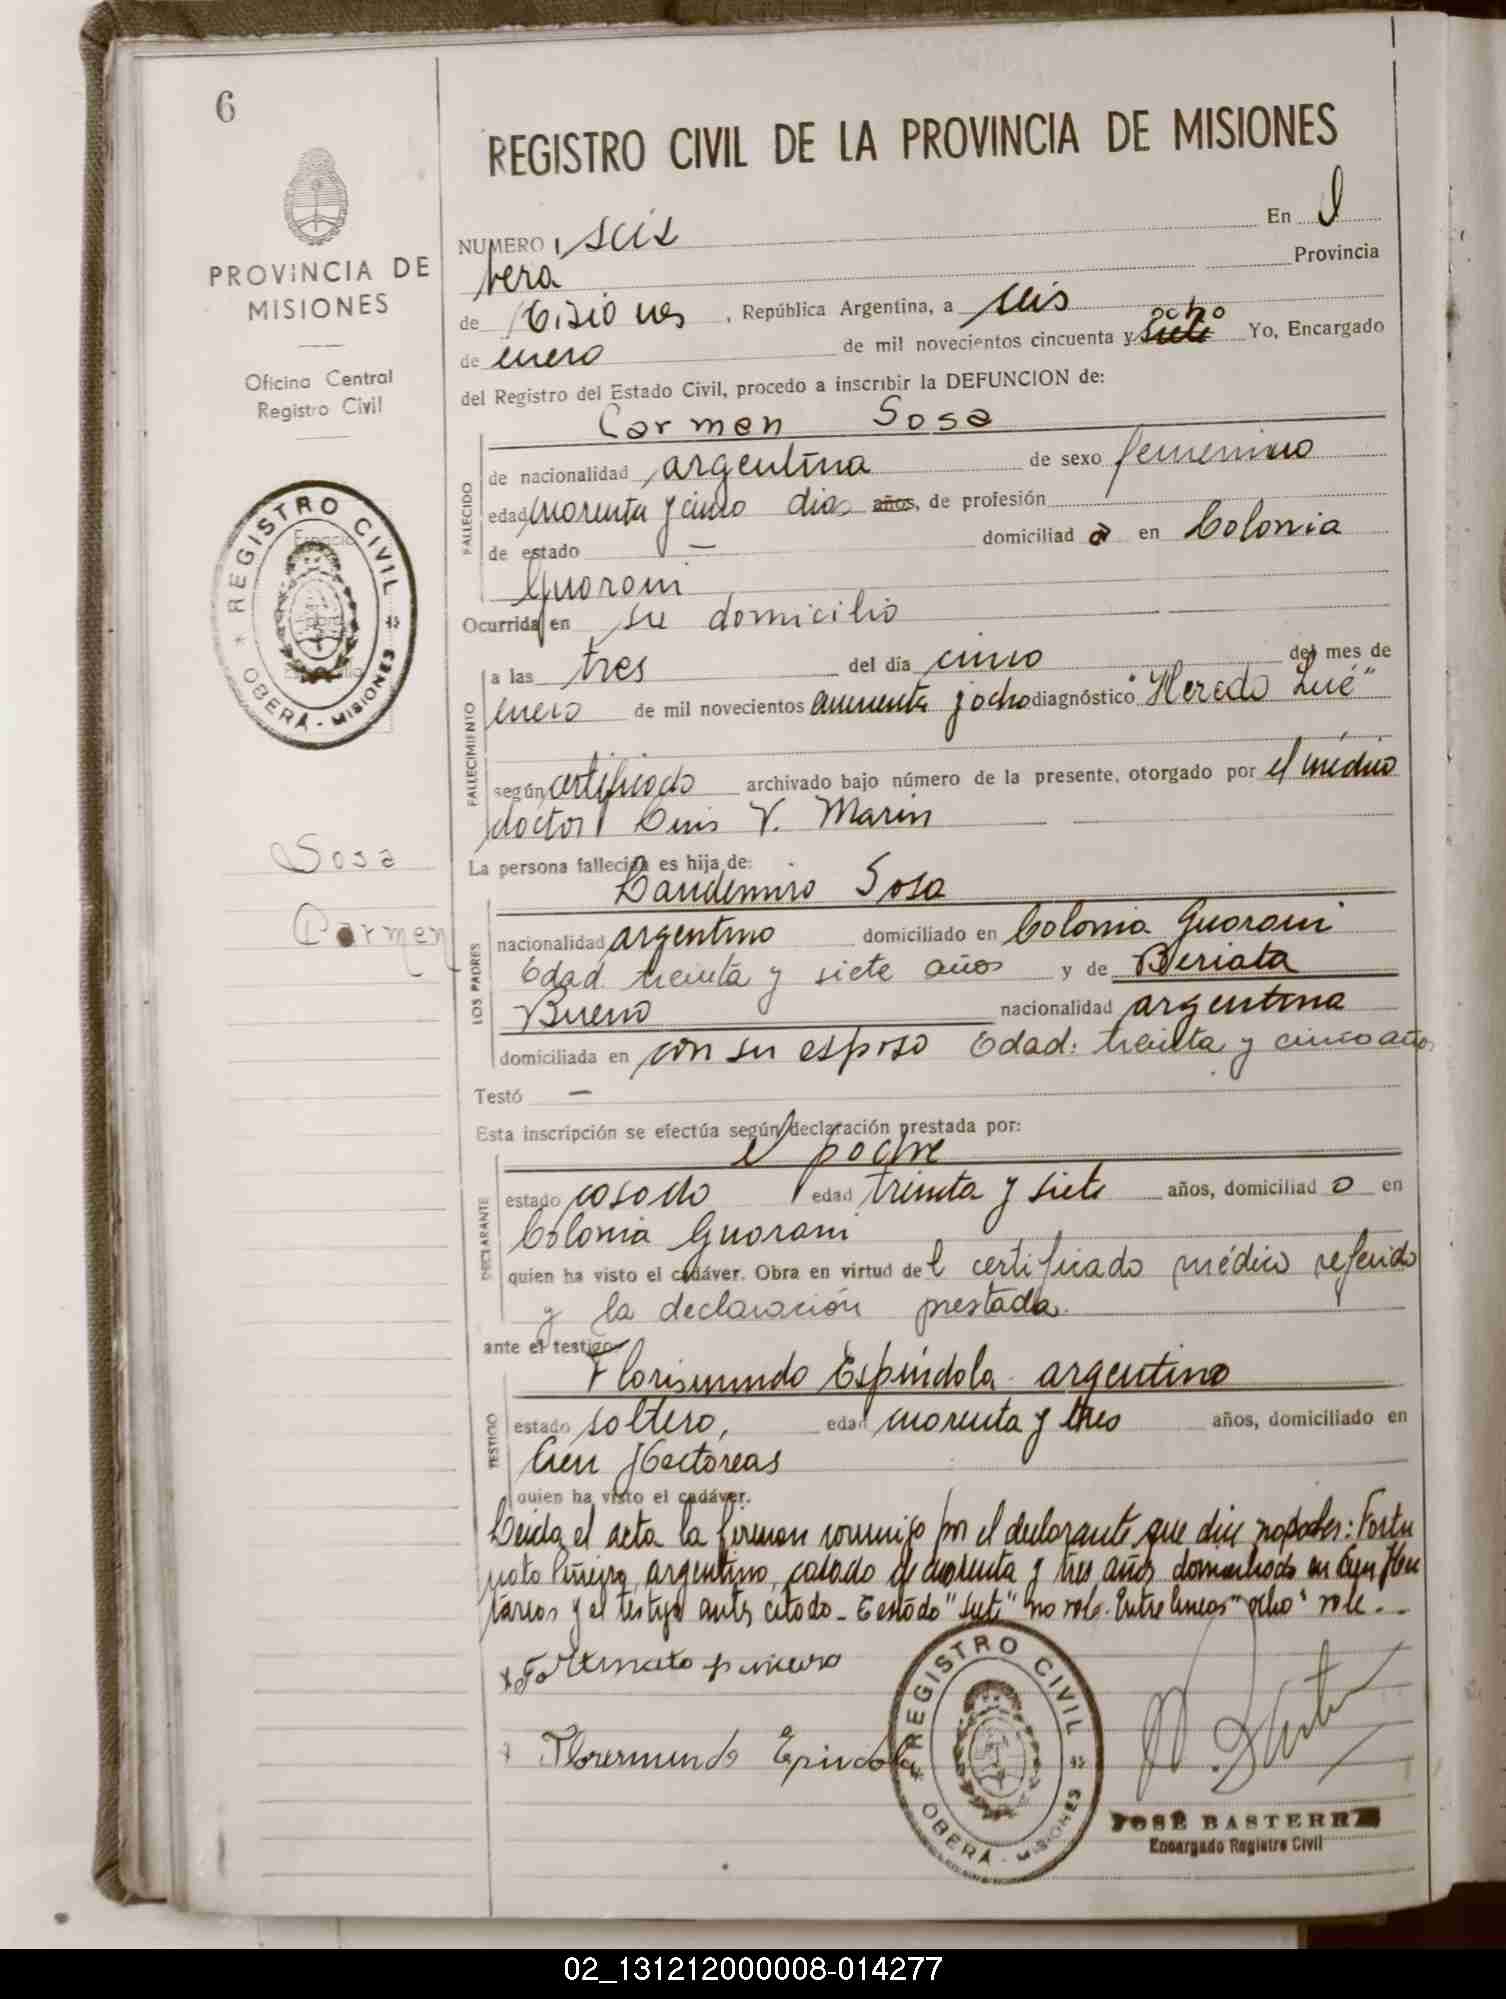 6
REGISTRO CIVIL DE LA PROVINCIA DE MISIONES
PROVINCIA DE
MISIONES
Oficina Central
Registro Civil
REGISTRO CIVIL
OBERÁ - MISIONES
Sosa
Carmen
NUMERO seis En O
bera Provincia
de Misiones, República Argentina, a seis
ocho
de enero de mil novecientos cincuenta y siete Yo, Encargado
del Registro del Estado Civil, procedo a inscribir la DEFUNCION de:
Carmen Sosa
FALLECIDO
de nacionalidad argentina de sexo femenino
edad cuarenta y cinco dias años, de profesión
de estado — domiciliad a en Colonia
Guarani
Ocurrida en su domicilio
FALLECIMIENTO
a las tres del día cinco del mes de
enero de mil novecientos cincuenta y ocho diagnóstico "Heredo Lué"
según certificado archivado bajo número de la presente, otorgado por el médico
doctor Luis V. Marin
La persona fallecida es hija de:
Laudemiro Sosa
LOS PADRES
nacionalidad argentino domiciliado en Colonia Guarani
Edad treinta y siete años y de Beriata
Bueno nacionalidad argentina
domiciliada en con su esposo Edad: treinta y cinco años
Testó —
Esta inscripción se efectúa según declaración prestada por:
el padre
DECLARANTE
estado casado edad treinta y siete años, domiciliad o en
Colonia Guarani
quien ha visto el cadáver. Obra en virtud de l certificado médico referido
y la declaración prestada.
ante el testigo
Florismundo Espíndola argentino
TESTIGO
estado soltero, edad cuarenta y tres años, domiciliado en
Cien Hectareas
quien ha visto el cadáver.
Leida el acta la firman conmigo por el declarante que dice no poder: Fortu
nato Piñeiro, argentino, casado de cuarenta y tres años domiciliado en Cien Hec
tareas y el testigo antes citado - Testado "siete" no vale. Entre lineas "ocho" vale. -
Fortunato pineiro
Florermundo Epindola
REGISTRO CIVIL
OBERÁ - MISIONES
JOSÉ BASTERRE
Encargado Registro Civil
02_131212000008-014277